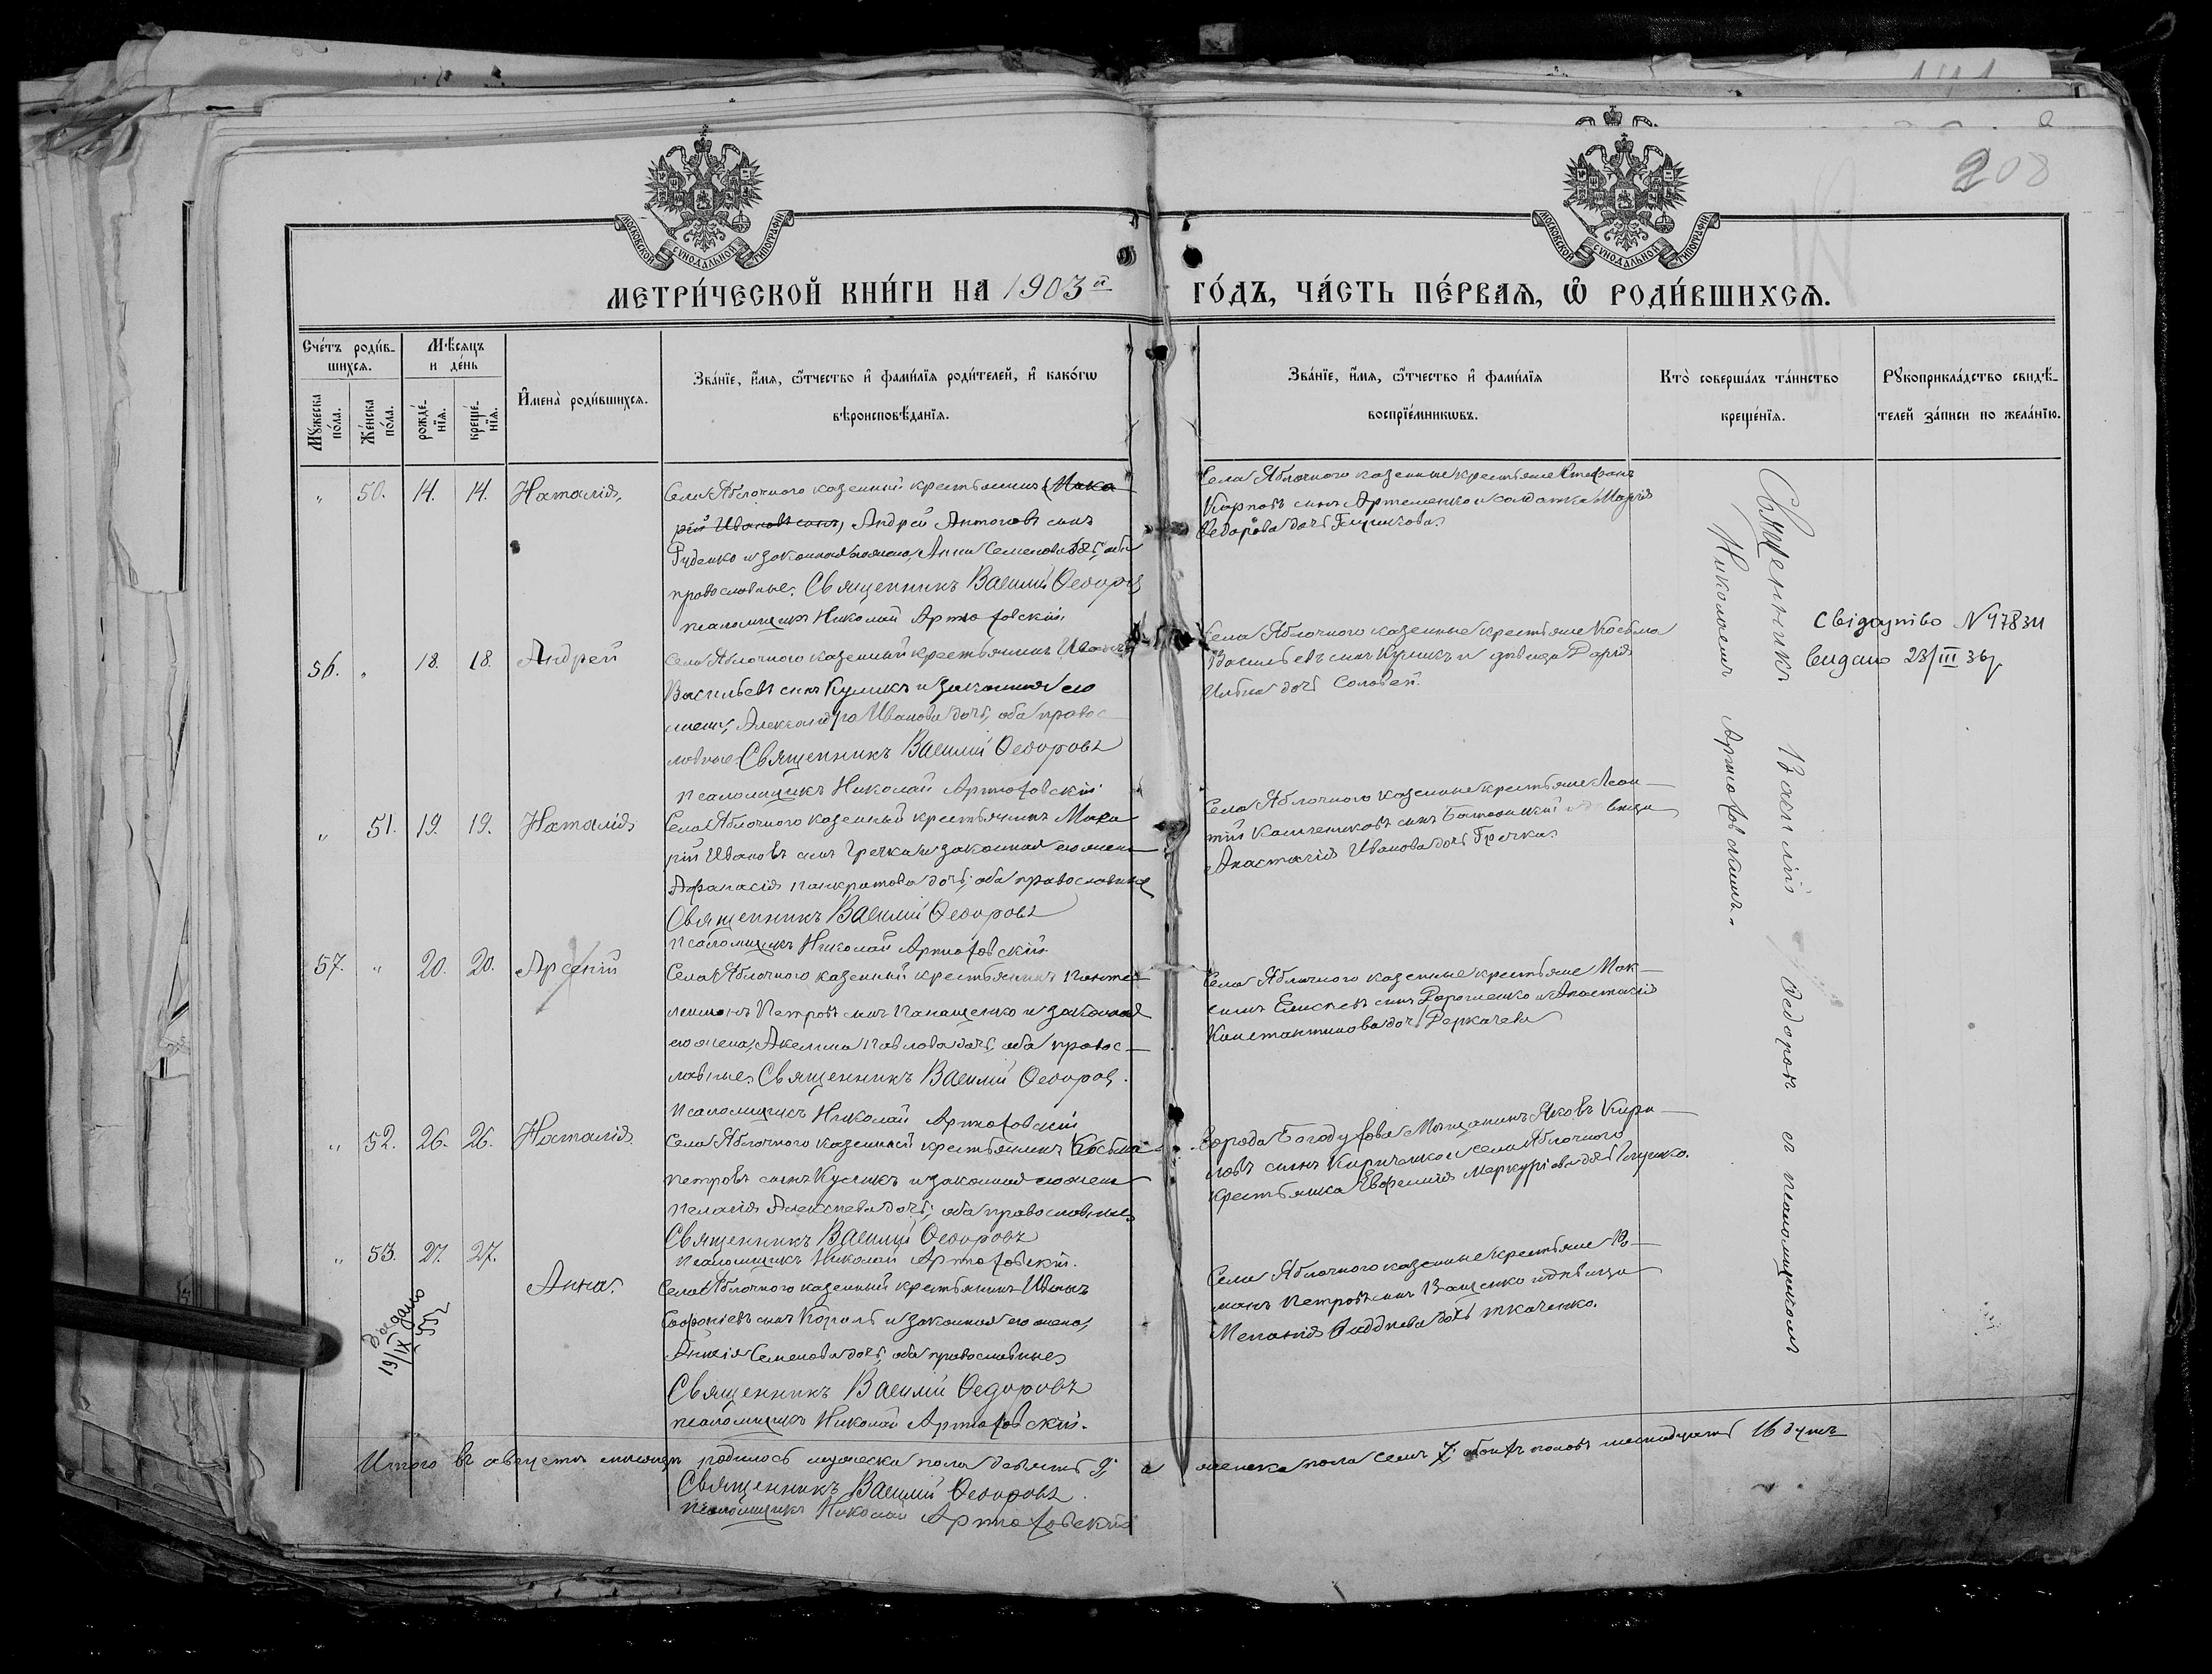 208
МОСКОВСКОЙ СѴНОДАЛЬНОЙ ТИПОГРАФІИ
МОСКОВСКОЙ СѴНОДАЛЬНОЙ ТИПОГРАФІИ
МЕТРИ́ЧЕСКОЙ КНИ́ГИ НА 1903й ГО́ДЪ, ЧА́СТЬ ПЕ́РВАѦ, Ѽ РОДИ́ВШИХСѦ.
Сче́тъ роди́вшихсѧ.
Мꙋ́жеска по́ла.
Же́нска по́ла.
Мѣ́сѧцъ и де́нь
рожде́нїѧ.
креще́нїѧ.
И҆мена̀ роди́вшихсѧ.
Зва́нїе, и҆́мѧ, ѻ҆́тчество и҆ фами́лїѧ роди́телей, и҆ како́гѡ
вѣроисповѣ́данїѧ.
Зва́нїе, и҆́мѧ, ѻ҆́тчество и҆ фами́лїѧ
воспрїе́мникѡвъ.
Кто̀ соверша́лъ та́инство
креще́нїѧ.
Рꙋкоприкла́дство свидѣ́телей за́писи по жела́нїю.
„ 50. 14. 14. Наталія.
Села Яблочного казенный крестьянинъ (Мака
рій Ивановъ сынъ) Андрей Антоновъ сынъ
Руденко и законная жена его Анна Семенова дочь, оба
православные. Священникъ Василій Ѳедоровъ
псаломщикъ Николай Артюховскій
Села Яблочного казенные крестьяне Стефанъ
Карповъ сынъ Артеменко и солдатка Марія
Ѳедорова дочь
56. „ 18. 18. Андрей
Села Яблочного казенный крестьянинъ Иванъ
Васильевъ сынъ Куликъ и законная его
жена, Александра Иванова дочь, оба правос-
лавные Священникъ Василій Ѳедоровъ
Псаломщикъ Николай Артюховскій
Села Яблочного казенные крестьяне Косьма
Васильевъ сынъ Куликъ и девица Дарія
Ильина дочь Соловей.
„ 51. 19. 19. Наталія
Села Яблочного казенный крестьянинъ Мака
рій Ивановъ сынъ Гречка и законная его жена
Афанасія Панкратова дочь, оба православные
Священникъ Василій Ѳедоровъ
Псаломщикъ Николай Артюховскій
Села Яблочного казенные крестьяне Леон-
тій сынъ и девица
Анастасія Иванова дочь Гречка
57. „ 20. 20. Арсеній
Села Яблочного казенный крестьянинъ Панте-
леимонъ Петровъ сынъ Панащенко и законная
его жена, Акелина Павлова дочь, оба правос-
лавные. Священникъ Василій Ѳедоровъ.
Псаломщикъ Николай Артюховскій
Села Яблочного казенные крестьяне Мак-
симъ сынъ Дорошенко и Анастасія
Константинова дочь Деркачева
„ 52. 26. 26. Наталія
Села Яблочного казенный крестьянинъ Косьма
Петровъ сынъ Куликъ и законная его жена
Пелагія Алексеева дочь, оба православные
Священникъ Василій Ѳедоровъ
Псаломщикъ Николай Артюховскій.
Города Богодухова Мещанинъ Яковъ Кири-
ловъ сынъ Кириченко и села Яблочного
крестьянка Евфимія Меркуріева дочь
„ 53. 27. 27. Анна.
Села Яблочного казенный крестьянинъ Иванъ
Софроніевъ сынъ Король и законная его жена,
Семенова дочь, оба православные
Священникъ Василій Ѳедоровъ
псаломщикъ Николай Артюховскій.
Села Яблочного казенные крестьяне Ро-
манъ Петровъ сынъ Ващенко и девица
Меланія дочь Ткаченко.
19/IX 55г
Священникъ Василій Ѳедоровъ съ псаломщикомъ
Николаемъ Артюховскимъ.
Свідоцтво №47834
видано 23/III 36р
Итого въ августе месяце родилось мужеска пола девять 9, а женска пола семь 7, обоихъ половъ шестнадцать 16 душъ
Священникъ Василій Ѳедоровъ.
Псаломщикъ Николай Артюховскій